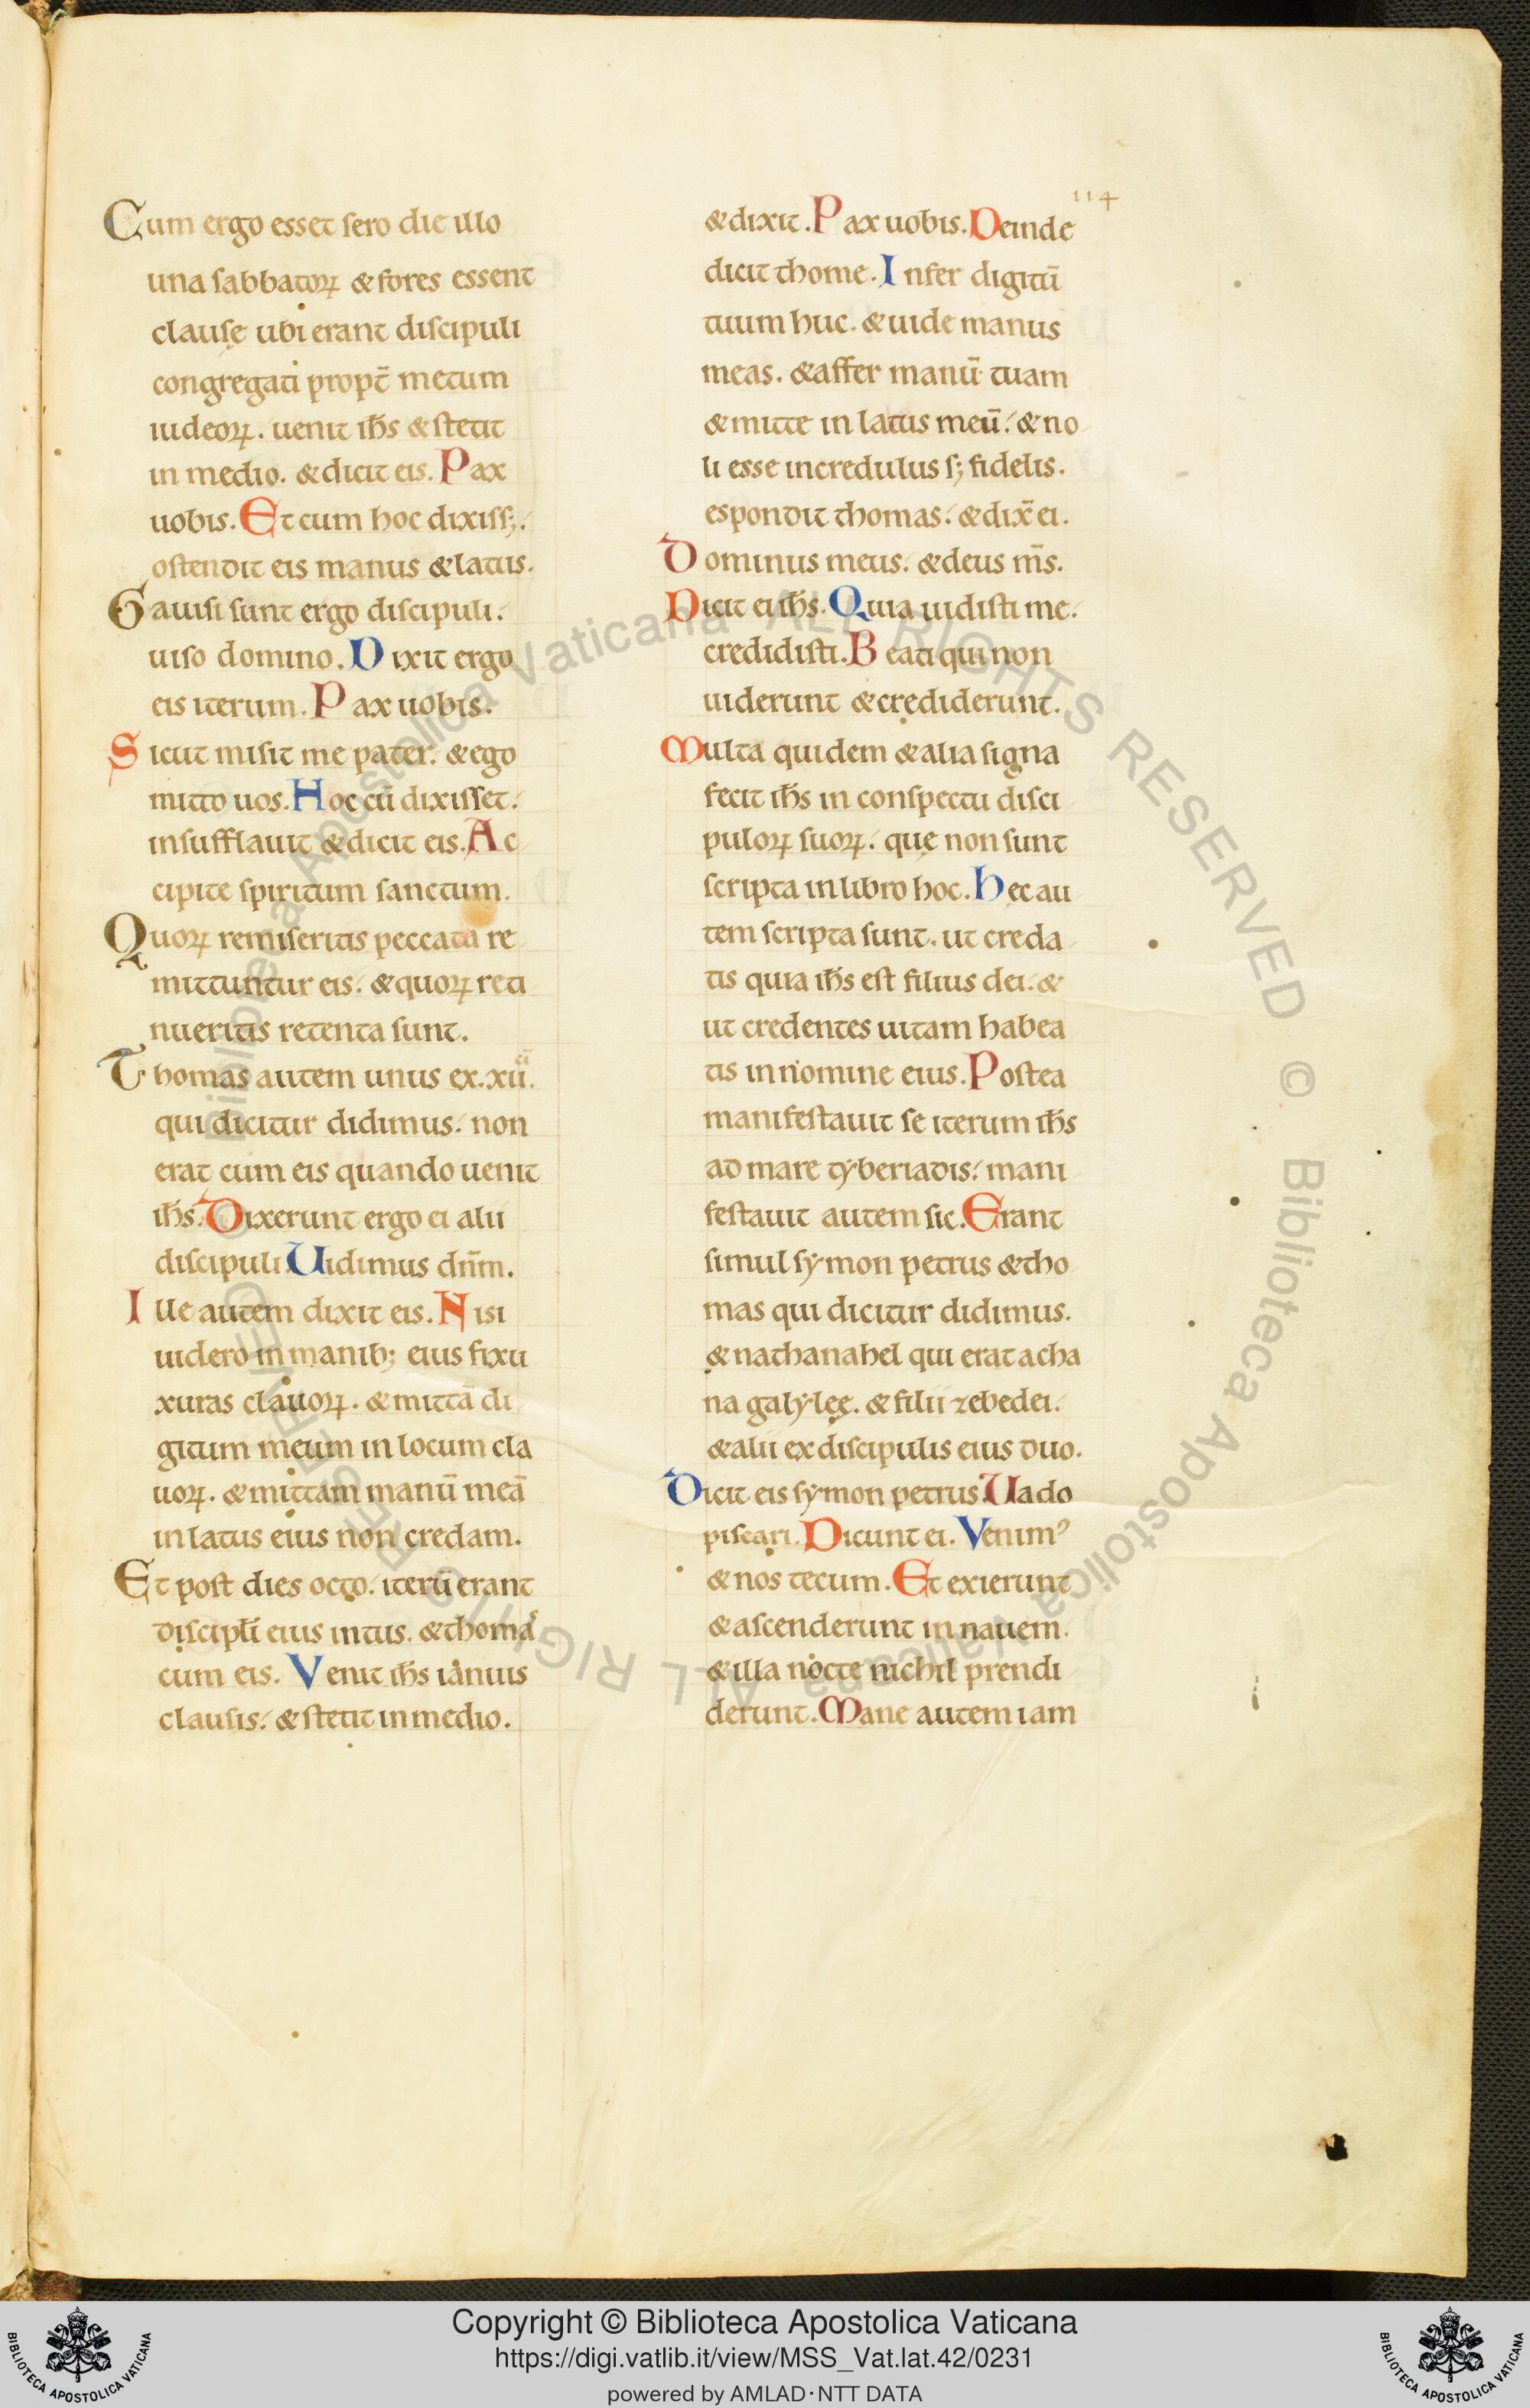 114
Cum ergo esset sero die illo
una sabbatoꝝ & fores essent
clausę ubi erant discipuli
congregati propt̄ metum
iudeoꝝ. uenit ih̄s & stetit
in medio. & dicit eis. Pax
uobis. Et cum hoc dixiss;.
ostendit eis manus & latus.
Gauisi sunt ergo discipuli.
uiso domino. Dixit ergo
eis iterum. Pax uobis.
Sicut misit me pater. & ego
mitto uos. Hoc cū dixisset.
insufflauit & dicit eis. Ac
cipite spiritum sanctum.
Quoꝝ remiseritis peccata re
mittuntur eis. & quoꝝ reti
nueritis retenta sunt.
Thomas autem unus ex .xii.
qui dicitur didimus. non
erat cum eis quando uenit
ih̄s. Dixerunt ergo ei alii
discipuli. Uidimus dn̄m.
Ille autem dixit eis. Nisi
uidero in manib; eius fixu
xuras clauoꝝ. & mittā di
gitum meum in locum cla
uoꝝ. & mittam manū meā
in latus eius non credam.
Et post dies octo. iterū erant
discipl̄i eius intus. & thomas
cum eis. Venit ih̄s ianuis
clausis. & stetit in medio.
& dixit. Pax uobis. Deinde
dicit thome. Infer digitū
tuum huc. & uide manus
meas. & affer manū tuam
& mitte in latus meū. & no
li esse incredulus s; fidelis.
espondit thomas. & dix̄ ei.
Dominus meus. & deus m̄s.
Dicit ei ih̄s. Quia uidisti me.
credidisti. Beati qui non
uiderunt & crediderunt.
Multa quidem & alia signa
fecit ih̄s in conspectu disci
puloꝝ suoꝝ. quę non sunt
scripta in libro hoc. Hec au
tem scripta sunt. ut creda
tis quia ih̄s est filius dei. &
ut credentes uitam habea
tis in nomine eius. Postea
manifestauit se iterum ih̄s
ad mare tyberiadis. mani
festauit autem sic. Erant
simul symon petrus & tho
mas qui dicitur didimus.
& nathanahel qui erat a cha
na galylęę. & filii zebedei.
& alii ex discipulis eius duo.
Dicit eis symon petrus. Uado
piscari. Dicunt ei. Venimꝰ
& nos tecum. Et exierunt
& ascenderunt in nauem.
& illa nocte nichil prendi
derunt. Mane autem iam
Copyright © Biblioteca Apostolica Vaticana
https://digi.vatlib.it/view/MSS_Vat.lat.42/0231
powered by AMLAD·NTT DATA
BIBLIOTECA APOSTOLICA VATICANA
BIBLIOTECA APOSTOLICA VATICANA
© Biblioteca Apostolica Vaticana ALL RIGHTS RESERVED
© Biblioteca Apostolica Vaticana ALL RIGHTS RESERVED